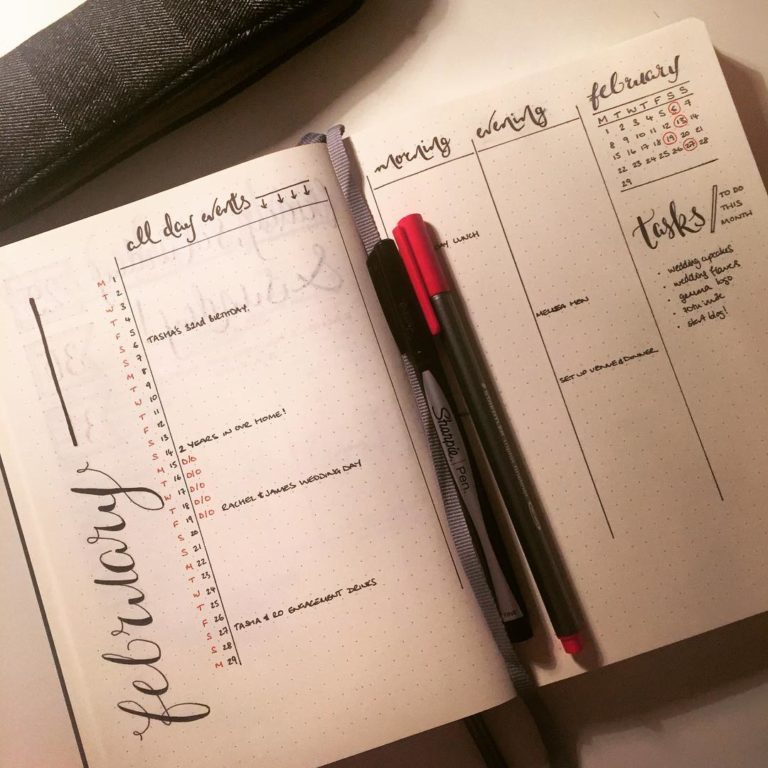 all day events ↓ ↓ ↓ ↓
M 1
T 2
W 3
T 4
F 5
S 6 TASHA'S BIRTHDAY
S 7
M 8
T 9
W 10
T 11
F 12
S 13 2 YEARS IN OUR HOME!
S 14
M 15 D/O
T 16 D/O
W 17 D/O
T 18 D/O
F 19 D/O RACHEL & JAMES WEDDING DAY
S 20
S 21
M 22
T 23
W 24
T 25
F 26
S 27 TASHA & RO ENGAGEMENT DRINKS
S 28
M 29
february
morning
LUNCH
Sharpie. Pen.
evening
HEN
SET UP VENUE & DINNER
february
M T W T F S S
1 2 3 4 5 6 7
8 9 10 11 12 13 14
15 16 17 18 19 20 21
22 23 24 25 26 27 28
29
tasks / TO DO
THIS
MONTH
• wedding cupcakes
• wedding frames
• gemma logo
• start blog!